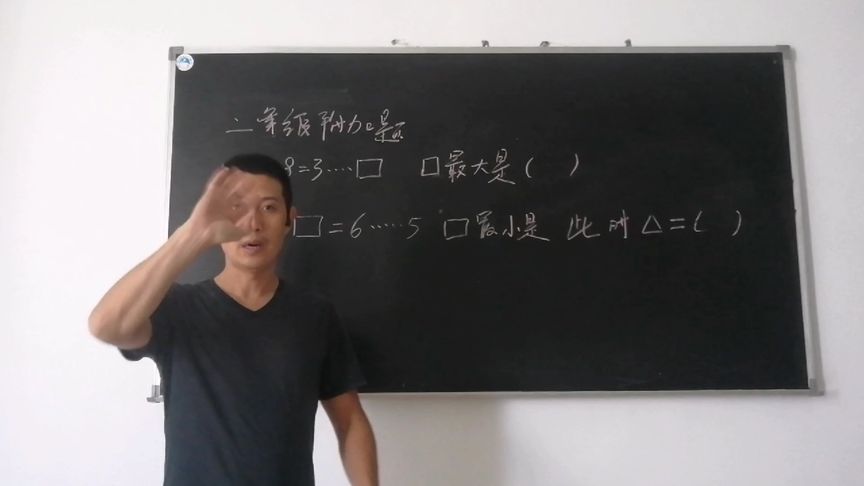 二年级附加题
8=3……□ □最大是( )
□=6……5 □最小是 此时△=( )